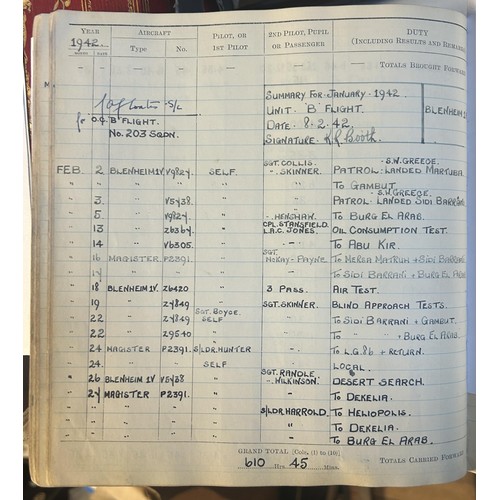 YEAR AIRCRAFT PILOT, OR 1ST PILOT 2ND PILOT, PUPIL OR PASSENGER DUTY (INCLUDING RESULTS AND REMARKS
1942. MONTH DATE Type No.
— — — — — TOTALS BROUGHT FORWARD
SUMMARY FOR - JANUARY - 1942.
S/L UNIT 'B' FLIGHT. BLENHEIM
for O.C. 'B' FLIGHT. DATE - 8.2.42.
No. 203 SQDN. SIGNATURE - K.R. Booth.
SGT. COLLIS. - S.W. GREECE.
FEB. 2 BLENHEIM 1V. V9824. SELF - SKINNER. PATROL - LANDED MARTUBA.
" " " " " " TO GAMBUT.
- S.W. GREECE.
" 3 " V5438. " " PATROL - LANDED SIDI BARRANI
" 5 " V9824. " - HENSHAW. TO BURG EL ARAB.
" 13 " Z6364. " CPL. STANSFIELD. L.A.C. JONES. OIL CONSUMPTION TEST.
" 14 " V6305. " - " - TO ABU KIR.
" 16 MAGISTER P2391. " SGT. MCKAY - PAYNE TO MERSA MATRUH + SIDI BARRANI
" 17 " " " " TO SIDI BARRANI + BURG EL ARAB
" 18 BLENHEIM 1V. Z6420 " 3 PASS. AIR TEST.
" 19 " Z7849 " SGT. SKINNER. BLIND APPROACH TESTS.
" 22 " Z7849 SGT. BOYCE. SELF " TO SIDI BARRANI + GAMBUT.
" 22 " Z9540 " " TO " " BURG EL ARAB
" 24 MAGISTER P2391. S/LDR. HUNTER — TO L.G. 86 + RETURN.
" 24. " " SELF — LOCAL.
" 26 BLENHEIM 1V V5438 " SGT. RANDLE. - WILKINSON. DESERT SEARCH.
" 27 MAGISTER P2391. " — TO DEKELIA.
" " " " " S/LDR. HARROLD. TO HELIOPOLIS.
" " " " " " TO DEKELIA.
" " " " " " TO BURG EL ARAB.
GRAND TOTAL [Cols. (1) to (10)]
610 Hrs. 45 Mins. TOTALS CARRIED FORWARD